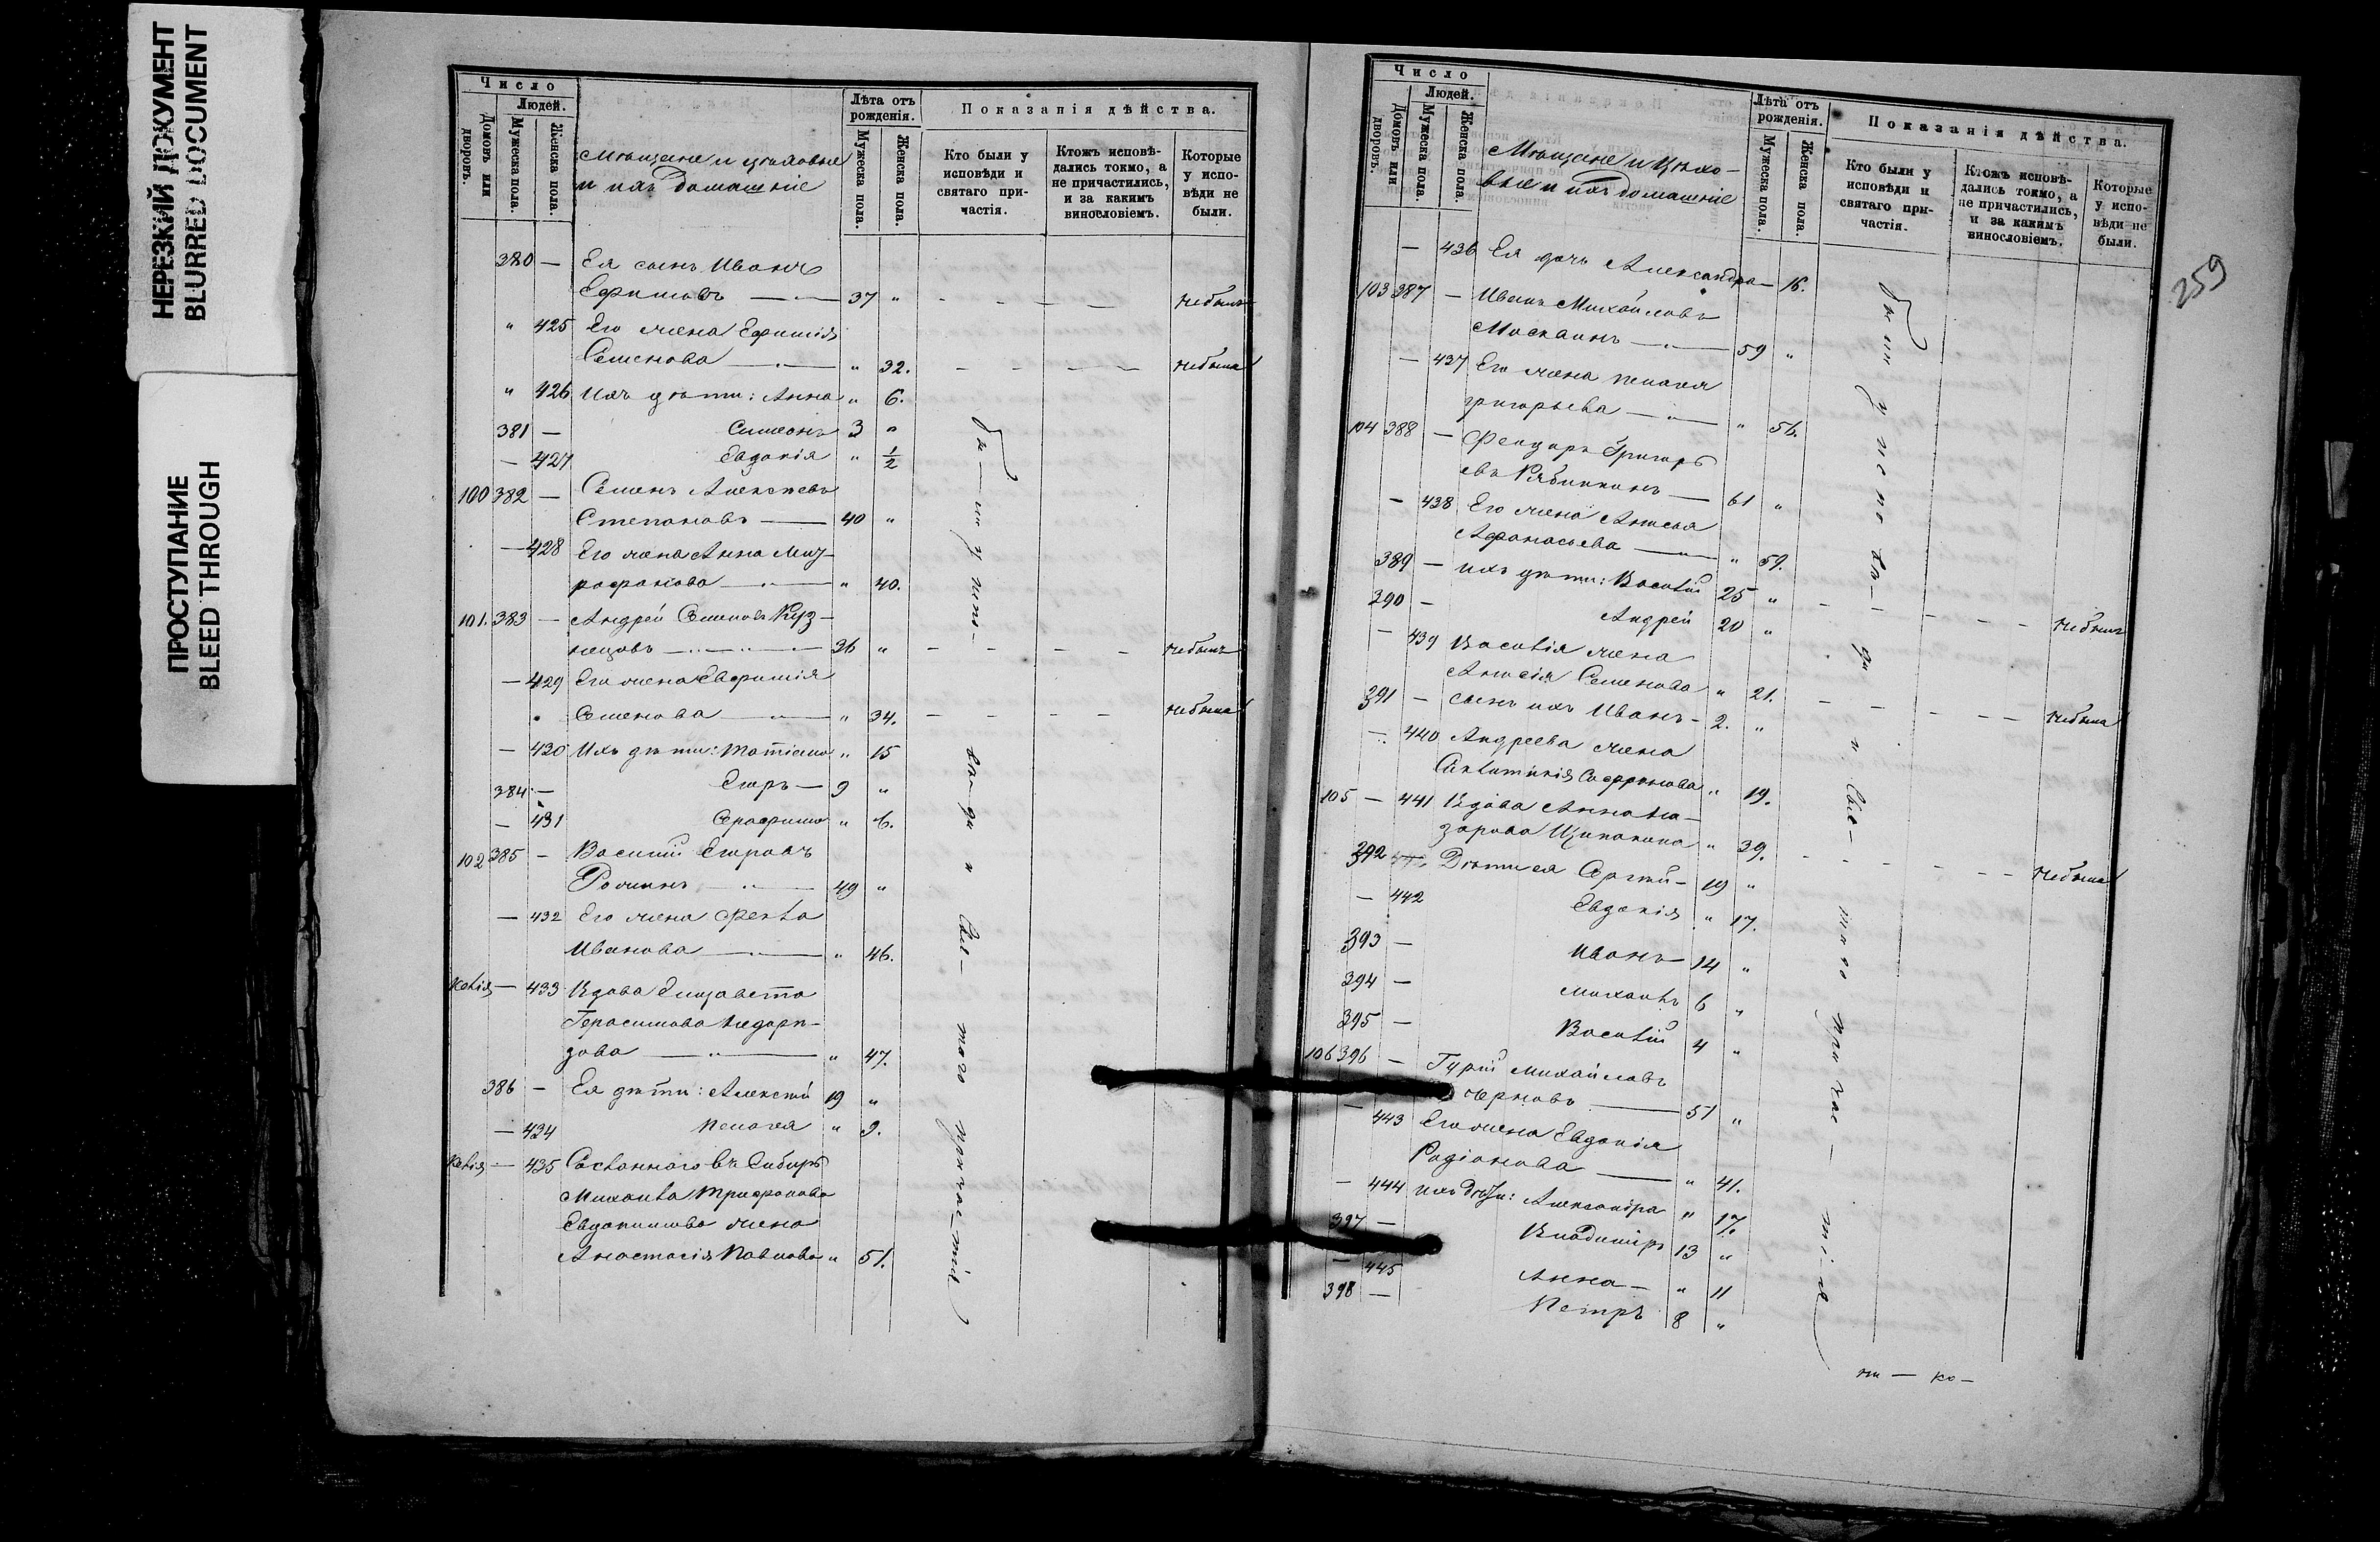 НЕРЕЗКИЙ ДОКУМЕНТ
BLURRED DOCUMENT
ПРОСТУПАНИЕ
BLEED THROUGH
Число
Людей.
Домовъ или дворовъ.
Мужеска пола.
Женска пола.
Мѣщане и цѣховые
и ихъ домашніе
Лѣта отъ рожденія.
Мужеска пола.
Женска пола.
Показанія дѣйства.
Кто были у исповѣди и святаго причастія.
Ктожъ исповѣдались токмо, а не причастились, и за какимъ винословіемъ.
Которые у исповѣди не были.
380 — Ея сынъ Иванъ
Ефимовъ — 37 " - - - - не былъ
" 425 Его жена Ефимія
Семенова — " 32. - - - - не была
" 426 Ихъ дѣти: Анна " 6.
381 — Симеонъ 3 "
— 427 Евдокія " 1/2
100 382 — Семенъ Алексѣевъ
Степановъ — 40 "
— 428 Его жена Анна Мит-
рофанова — " 40.
101. 383 — Андрей Семеновъ Куз-
нецовъ — 36 " - - - - не былъ
— 429 Его жена Евфимія
Семенова — " 34. - - - - не была
— 430 Ихъ дѣти: Татіана " 15
384 — Егоръ — 9 "
— 431 Серафима " 6.
102 385 — Василій Егоровъ
49 "
— 432 Его жена Фекла
Иванова — " 46.
Келія — 433 Вдова Елизавета
Герасимова
" 47.
386 — Ея дѣти: Алексѣй 19 "
— 434 Пелагея " 9.
Келія — 435 Сосланнаго въ Сибирь
Михаила Трифонова
Евдокимова жена
Анастасія Павлова " 51.
бы-ли у испо-
вѣ-ди и Свя-таго причас-тія
Число
Людей.
Домовъ или дворовъ.
Мужеска пола.
Женска пола.
Мѣщане и Цѣхо-
вые и ихъ домашніе
Лѣта отъ рожденія.
Мужеска пола.
Женска пола.
Показанія дѣйства.
Кто были у исповѣди и святаго причастія.
Ктожъ исповѣдались токмо, а не причастились, и за какимъ винословіемъ.
Которые у исповѣди не были.
259
— 436 Ея дочь Александра — 16.
103 387 — Иванъ Михайловъ
Москвинъ — 59 "
— 437 Его жена Пелагея
Григорьева — " 56.
104 388 — Феодоръ Григорь
евъ Рябинкинъ — 61 "
— 438 Его жена
Афанасьева — " 59.
389 — ихъ дѣти: Василій 25 " - - - - не былъ
390 — Андрей 20 "
— 439 Василія жена
Анисія Семенова " 21. - - - - не была
391 — сынъ ихъ Иванъ - 2. "
— 440 Андреева жена
" 19.
105 — 441 Вдова Анна На-
зарова " 39. - - - - не была
392 Дѣти ея Сергѣй - 19 "
— 442 Евдокія " 17.
393 — Иванъ 14 "
394 — Михаилъ 6 "
395 — Василій 4 "
106 396 — Гурій Михайловъ
Черновъ — 51 "
— 443 Его жена Евдокія
Родіонова — " 41.
— 444 ихъ дѣти: Александра " 17.
397 — Владиміръ 13 "
— 445 Анна — " 11
398 — Петръ 8 "
были у испо вѣ-ди и Свя-таго причас-тія
ни — ко —